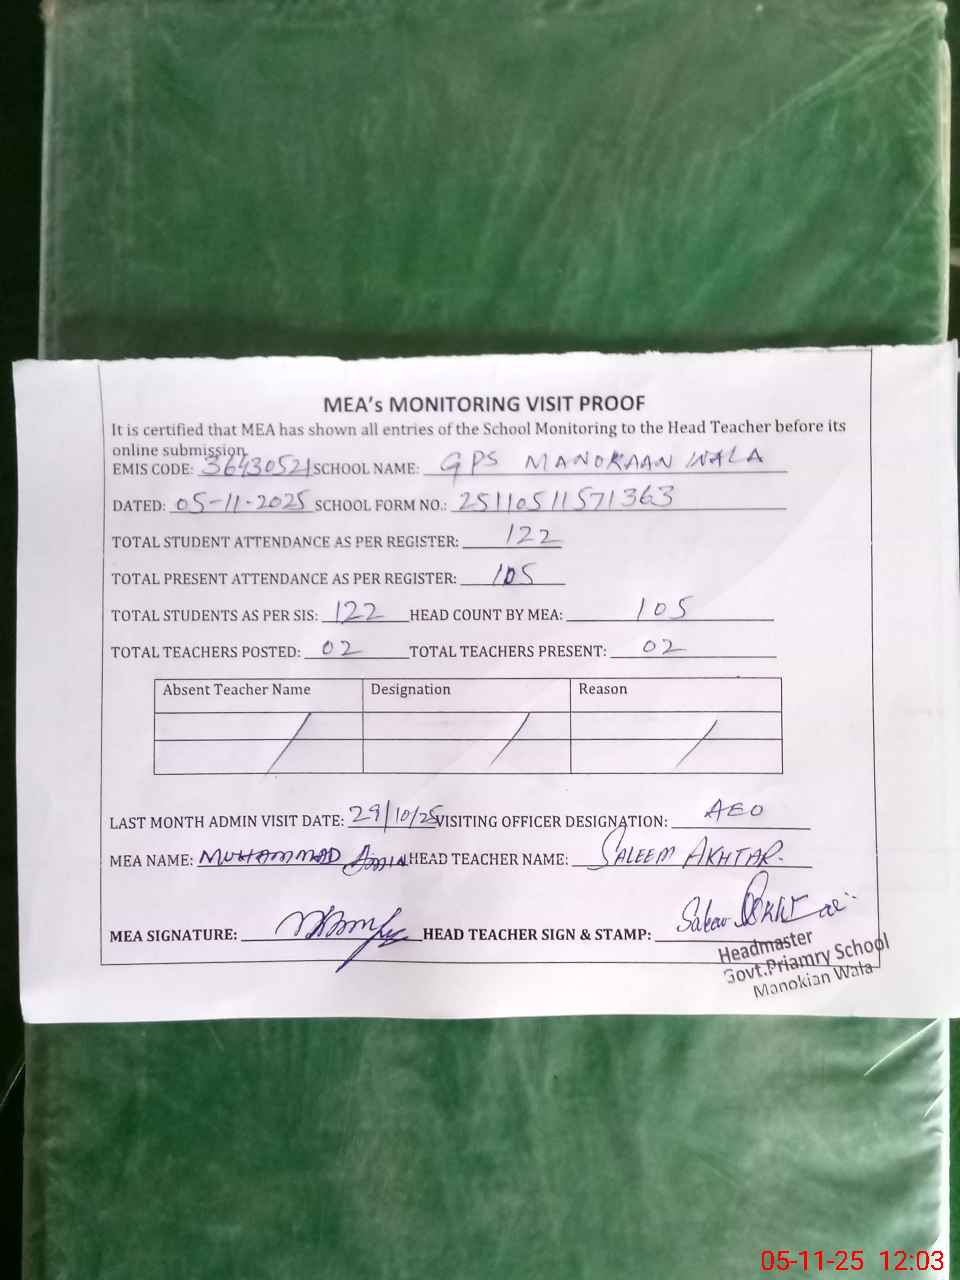 MEA's MONITORING VISIT PROOF
It is certified that MEA has shown all entries of the School Monitoring to the Head Teacher before its
online submission.
EMIS CODE: 36430521 SCHOOL NAME: GPS MANOKAAN WALA
DATED: 05-11-2025 SCHOOL FORM NO.: 25110511571363
TOTAL STUDENT ATTENDANCE AS PER REGISTER: 122
TOTAL PRESENT ATTENDANCE AS PER REGISTER: 105
TOTAL STUDENTS AS PER SIS: 122 HEAD COUNT BY MEA: 105
TOTAL TEACHERS POSTED: 02 TOTAL TEACHERS PRESENT: 02
Absent Teacher Name Designation Reason
LAST MONTH ADMIN VISIT DATE: 29/10/25 VISITING OFFICER DESIGNATION: AEO
MEA NAME: MUHAMMAD Amin HEAD TEACHER NAME: SALEEM AKHTAR.
MEA SIGNATURE: HEAD TEACHER SIGN & STAMP:
Headmaster
Govt.Priamry School
Manokian Wala
05-11-25 12:03